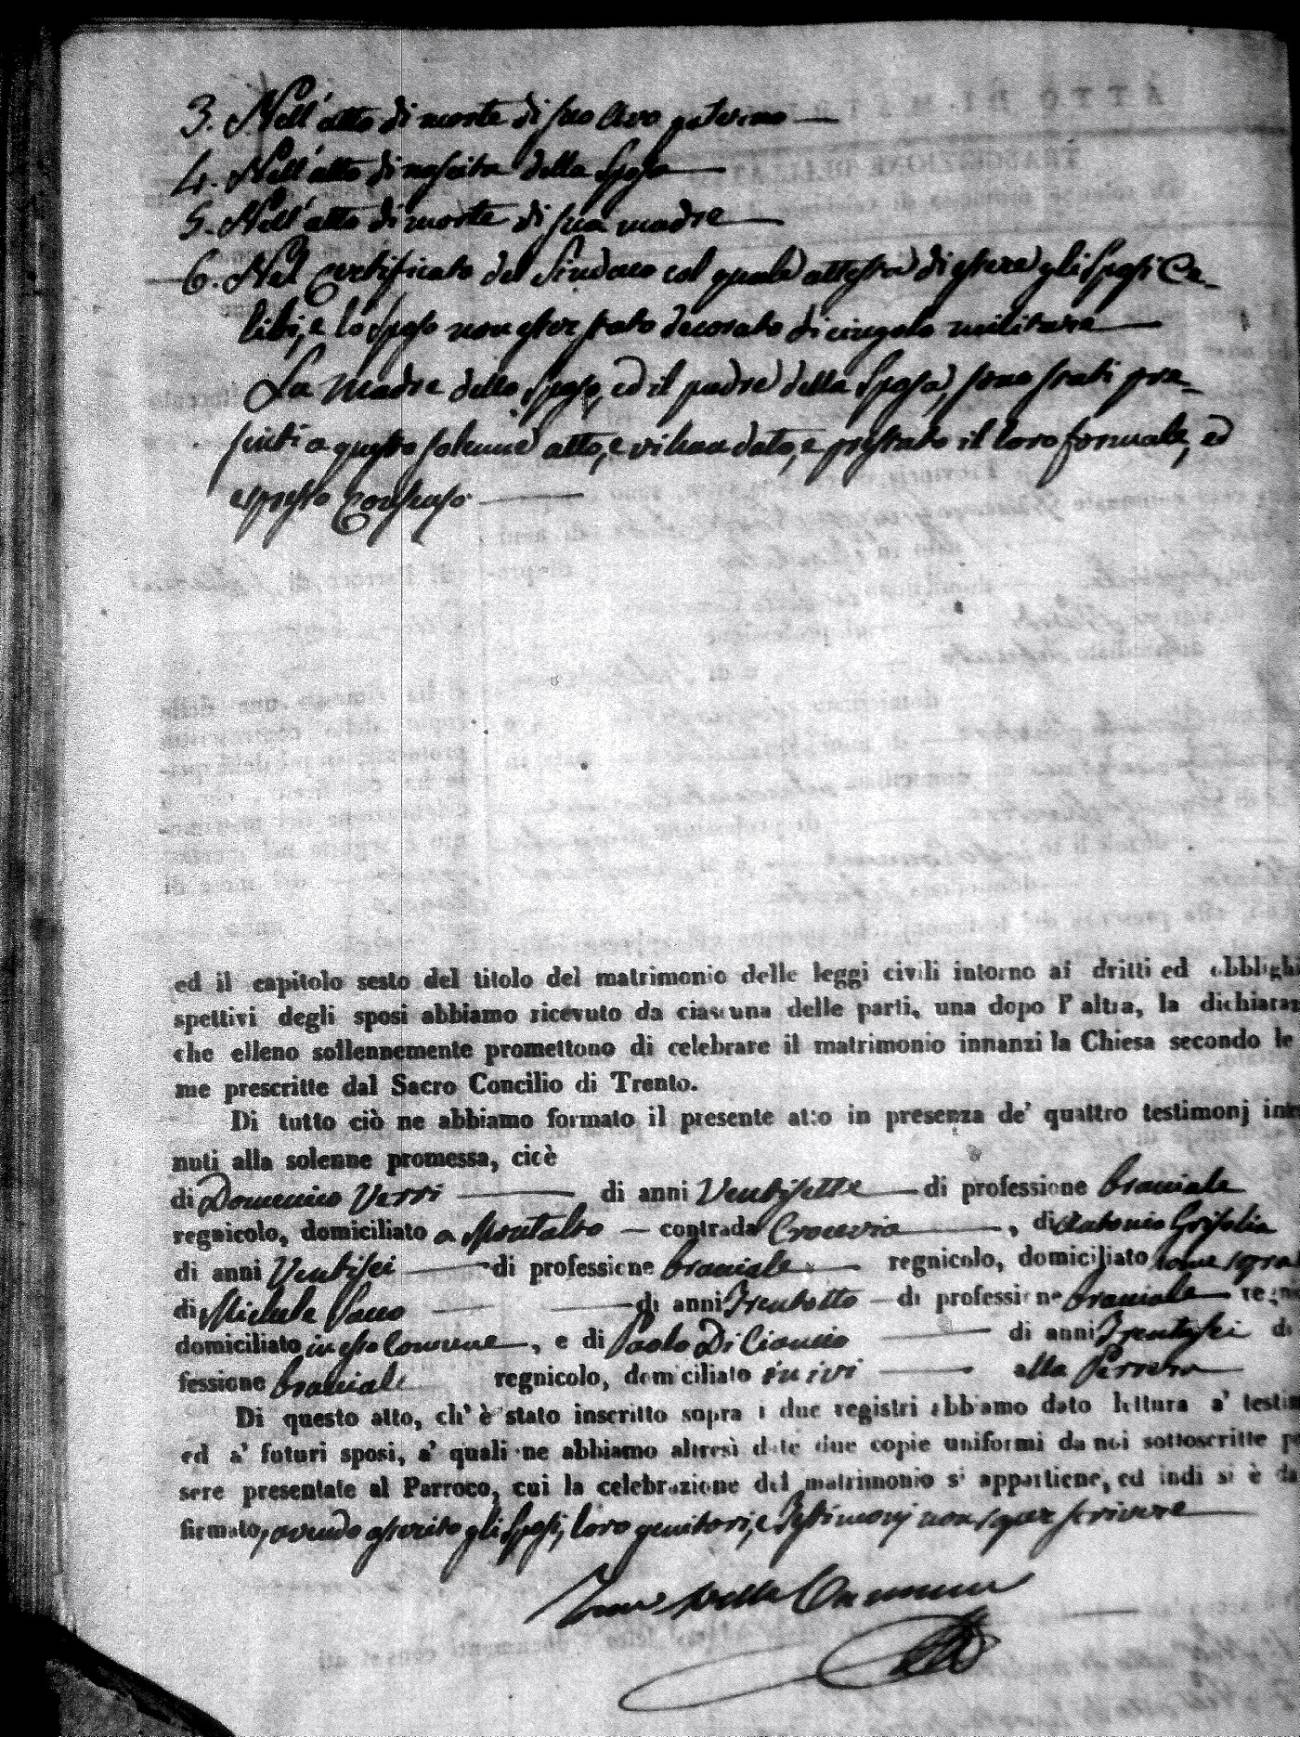 3. Nell'atto di morte di suo Avo paterno
4. Nell'atto di nascita della Sposa
5. Nell'atto di morte di sua madre
6. Nel Certificato del Sindaco col quale attesta di essere gli Sposi Ce-
libi, e lo Sposo non esser stato decorato di cingolo militare
La Madre dello Sposo, ed il padre della Sposa, sono stati pre-
senti a questo solenne atto, e vi han dato, e prestato il loro formale, ed
espresso Consenso
ed il capitolo sesto del titolo del matrimonio delle leggi civili intorno ai dritti ed obblighi
spettivi degli sposi abbiamo ricevuto da ciascuna delle parti, una dopo l'altra, la dichiaraz
che elleno sollennemente promettono di celebrare il matrimonio innanzi la Chiesa secondo le
me prescritte dal Sacro Concilio di Trento.
Di tutto ciò ne abbiamo formato il presente atto in presenza de' quattro testimonj inte
nuti alla solenne promessa, cioè
di Domenico Verri di anni Ventisette di professione bracciale
regnicolo, domiciliato a Montalto contrada , di Antonio Grisolia
di anni Ventisei di professione bracciale regnicolo, domiciliato come sopra
di Michele Sacco di anni Trentotto di professione bracciale regn
domiciliato in esso Comune, e di Paolo Di Cianni di anni Trentasei di
fessione bracciale regnicolo, domiciliato in ivi alla
Di questo atto, ch'è stato inscritto sopra i due registri abbiamo dato lettura a' testim
ed a' futuri sposi, a' quali ne abbiamo altresì date due copie uniformi da noi sottoscritte p
sere presentate al Parroco, cui la celebrazione del matrimonio s' appartiene, ed indi si è da
firmato, avendo asserito gli Sposi, loro genitori, e Testimonj non saper scrivere